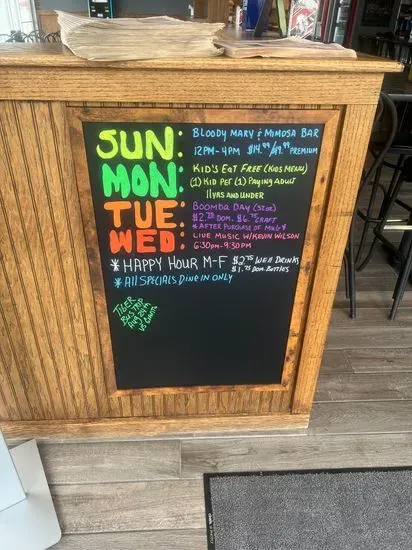 SUN: BLOODY MARY & MIMOSA BAR
12PM-4PM $14.99/$19.99 PREMIUM
MON: KID'S EAT FREE (KIDS MENU)
(1) KID PER (1) PAYING ADULT
11YRS AND UNDER
TUE: BOOMBA DAY (32oz)
$2.75 DOM. $6.75 CRAFT
*AFTER PURCHASE OF MUG*
WED: LIVE MUSIC W/KEVIN WILSON
6:30PM-9:30PM
*HAPPY HOUR M-F $2.75 WELL DRINKS
$1.75 DOM. BOTTLES
*ALL SPECIALS DINE IN ONLY
TIGER
BUS TRIP
AUG 24TH
VS